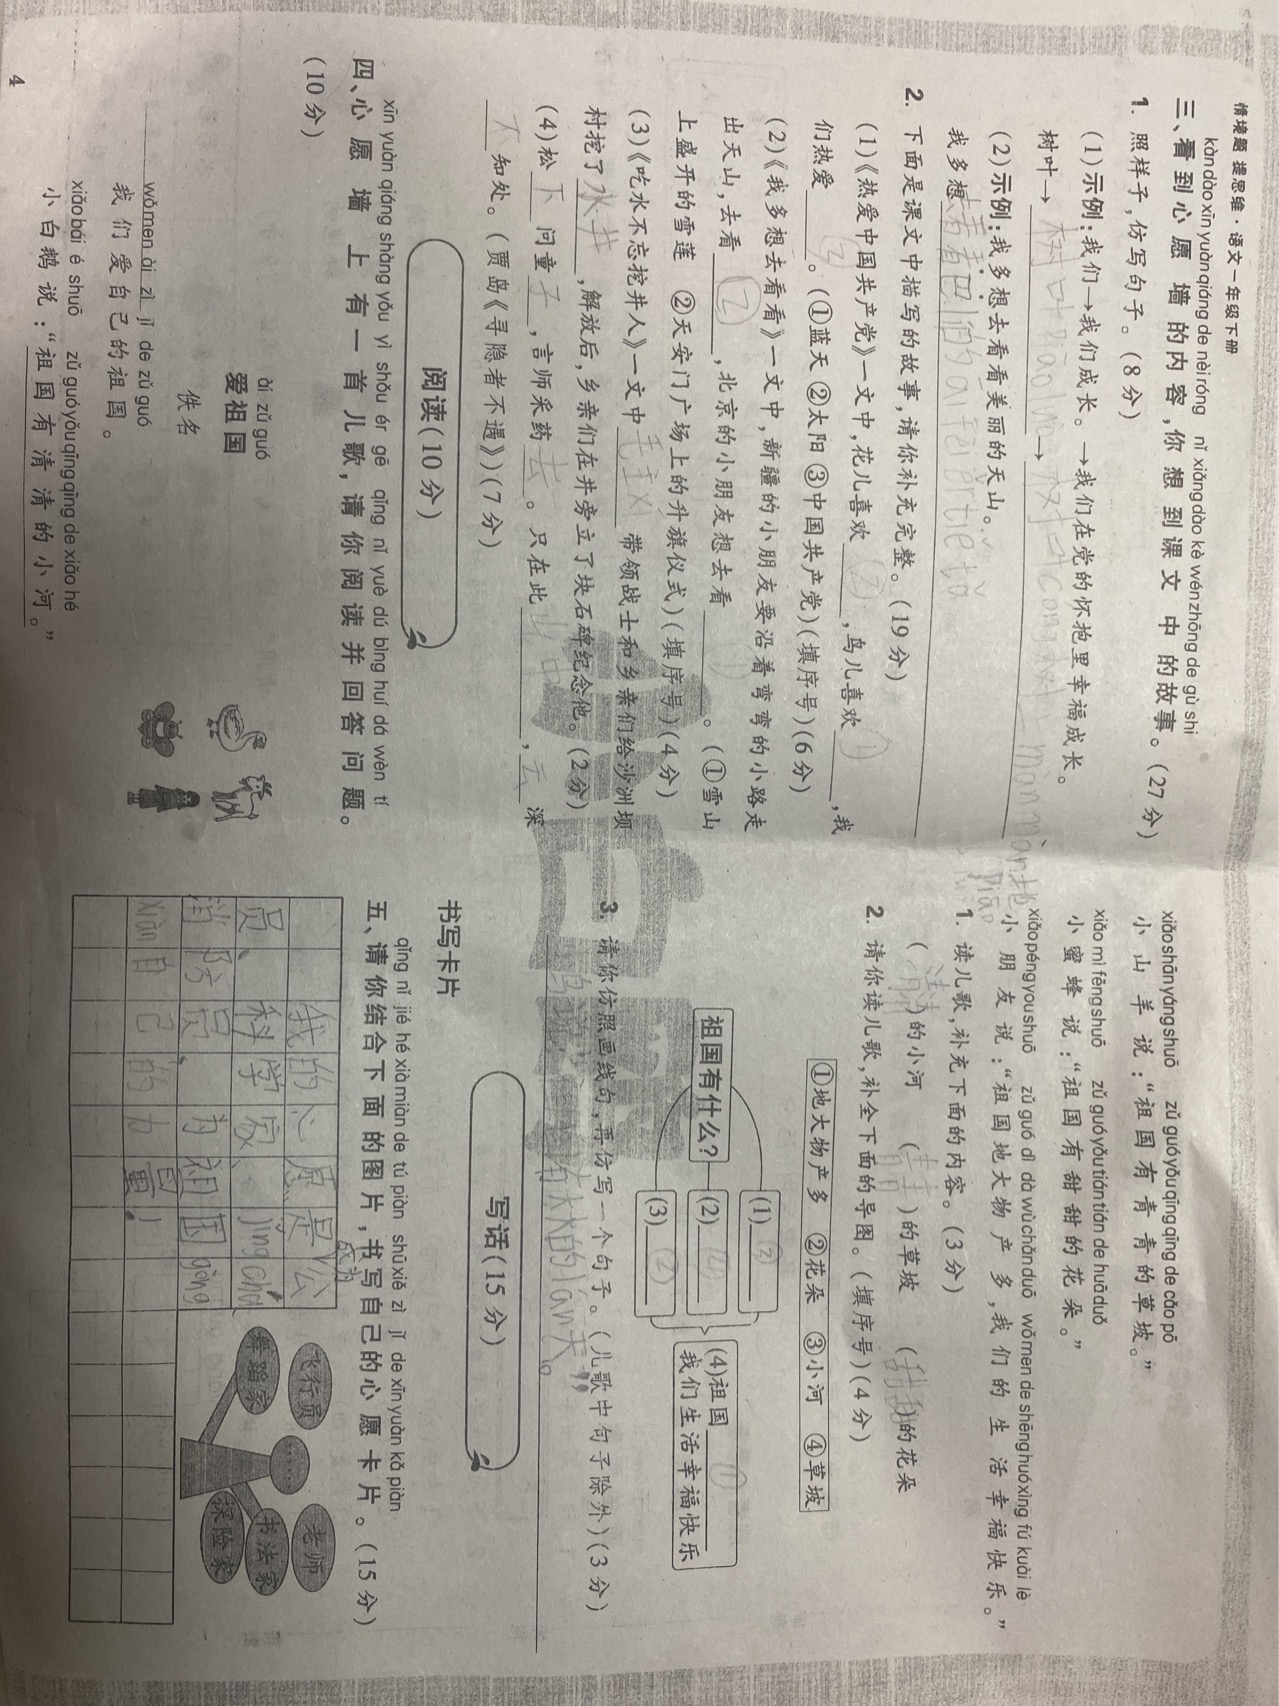 情境题 提思维·语文一年级下册
kàn dào xīn yuàn qiáng de nèi róng nǐ xiǎng dào kè wén zhōng de gù shi
三、看到心愿墙的内容,你想到课文中的故事。(27分)
1. 照样子,仿写句子。(8分)
(1)示例:我们→我们成长。→我们在党的怀抱里幸福成长。
树叶→树叶piāo luò→
(2)示例:我多想去看看美丽的天山。
我多想
2. 下面是课文中描写的故事,请你补充完整。(19分)
(1)《热爱中国共产党》一文中,花儿喜欢②,鸟儿喜欢①,我
们热爱③。(①蓝天 ②太阳 ③中国共产党)(填序号)(6分)
(2)《我多想去看看》一文中,新疆的小朋友要沿着弯弯的小路走
出天山,去看②,北京的小朋友想去看①。(①雪山
上盛开的雪莲 ②天安门广场上的升旗仪式)(填序号)(4分)
(3)《吃水不忘挖井人》一文中毛主义带领战士和乡亲们给沙洲坝
村挖了水井,解放后,乡亲们在井旁立了块石碑纪念他。(2分)
(4)松下问童子,言师采药去。只在此山中,云深
不知处。(贾岛《寻隐者不遇》)(7分)
阅读(10分)
xīn yuàn qiáng shàng yǒu yì shǒu ér gē qǐng nǐ yuè dú bìng huí dá wèn tí
四、心愿墙上有一首儿歌,请你阅读并回答问题。
(10分)
ài zǔ guó
爱祖国
佚名
wǒ men ài zì jǐ de zǔ guó
我们爱自己的祖国。
xiǎo bái é shuō zǔ guó yǒu qīng qīng de xiǎo hé
小白鹅说:“祖国有清清的小河。”
4
xiǎo shān yáng shuō zǔ guó yǒu qīng qīng de cǎo pō
小山羊说:“祖国有青青的草坡。”
xiǎo mì fēng shuō zǔ guó yǒu tián tián de huā duǒ
小蜜蜂说:“祖国有甜甜的花朵。”
xiǎo péng you shuō zǔ guó dì dà wù chǎn duō wǒ men de shēng huó xìng fú kuài lè
小朋友说:“祖国地大物产多,我们的生活幸福快乐。”
1. 读儿歌,补充下面的内容。(3分)
(清清)的小河 (青青)的草坡 (甜甜)的花朵
2. 请你读儿歌,补全下面的导图。(填序号)(4分)
①地大物产多 ②花朵 ③小河 ④草坡
祖国有什么?
(1)
(2)④
(3)②
(4)祖国①
我们生活幸福快乐
3. 请你仿照画线句,再仿写一个句子。(儿歌中句子除外)(3分)
写话(15分)
书写卡片
qǐng nǐ jié hé xià miàn de tú piàn shū xiě zì jǐ de xīn yuàn kǎ piàn
五、请你结合下面的图片,书写自己的心愿卡片。(15分)
我的心愿是成为公
员、科学家、jǐng chá
消防员,为祖国gòng
xiàn自己的力量!
飞行员
舞蹈家
……
老师
书法家
探险家